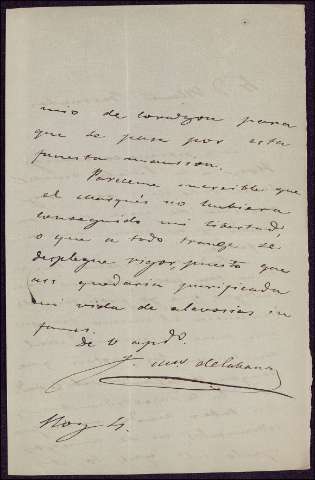 mio de corazon para
que se pase por esta
funesta mansion.
Pareceme increible que
el Marqués no hubiera
conseguido mi libertad,
o que a todo trange se
desplegue vigor, puesto que
asi quedaria purificada
mi vida de alevosias in
fames.
De V. apdo.
J.
Hoy 4.